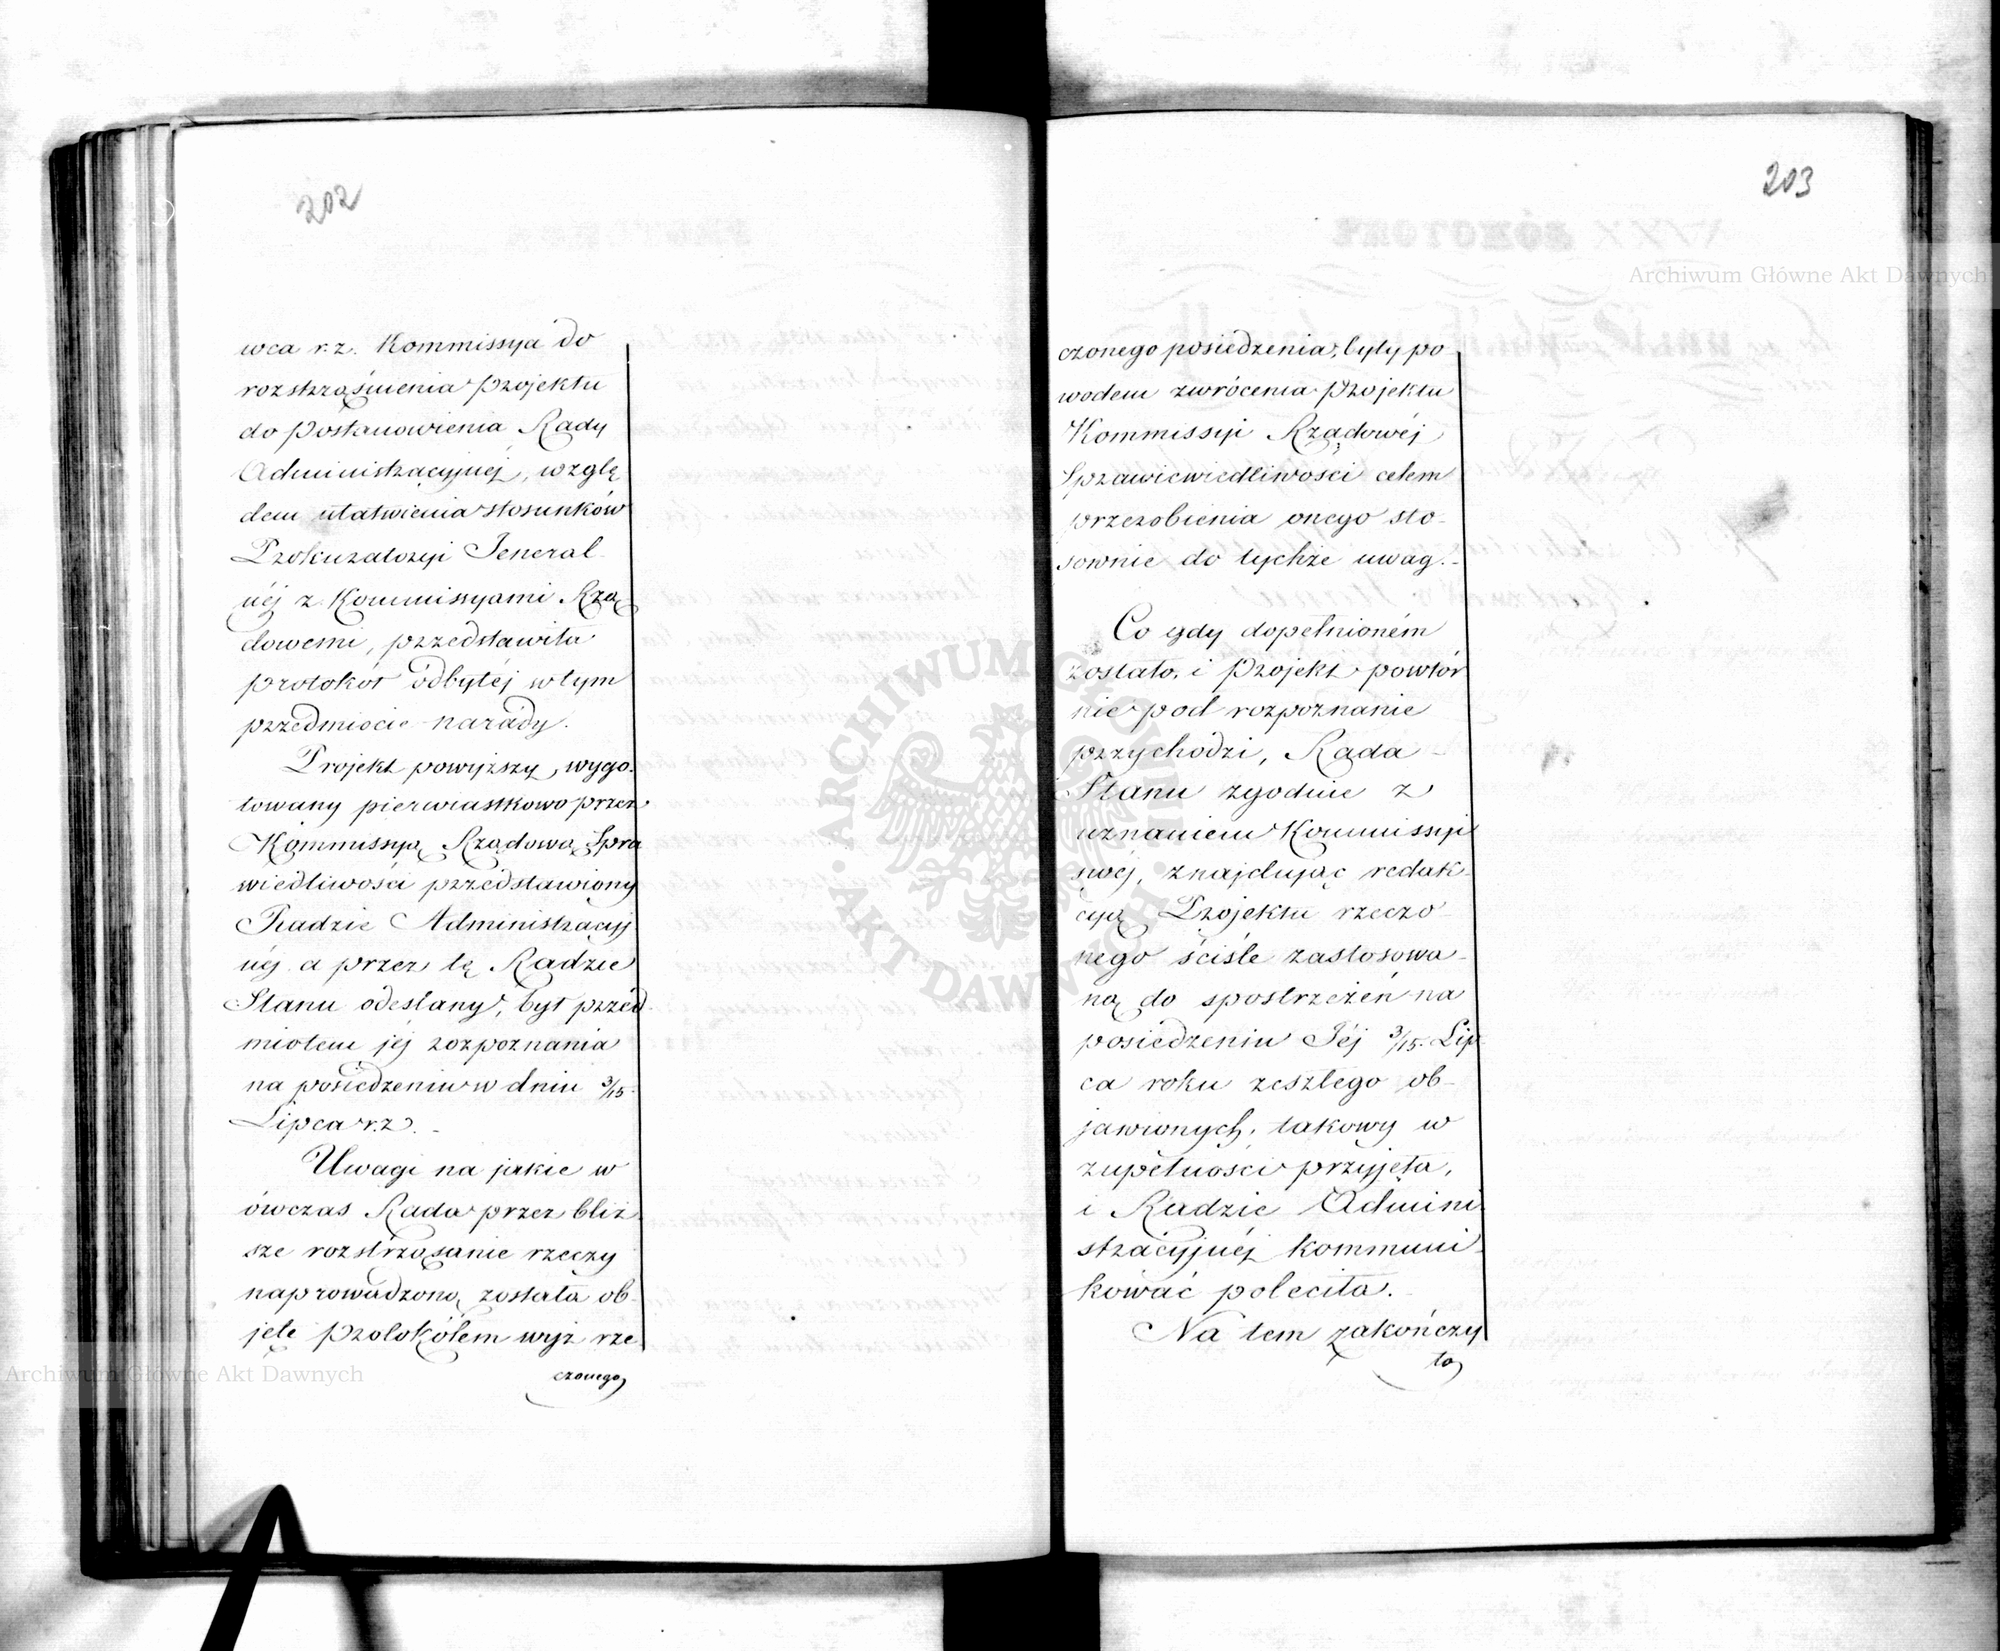 202
wca r. z. Kommissya do
rozstrząśnienia Projektu
do Postanowienia Rady
Administracyjnéj, wzglę
dem ułatwienia stosunków
Prokuratoryi Jeneral-
néj z Kommissyami Rzą
dowemi, przedstawiła
protokół odbytéj w tym
przedmiocie narady.
Projekt powyższy, wygo-
towany pierwiastkowo przez
Kommissyą Rządową Spra
wiedliwości przedstawiony
Radzie Administracyj
néj a przez tę Radzie
Stanu odesłany, był przed-
miotem jéj rozpoznania
na posiedzeniu w dniu 3/15.
Lipca r. z. -
Uwagi na jakie w
ówczas Rada przez bliż-
sze rozstrząsanie rzeczy
naprowadzoną została ob-
jęte protokółem wyż rze-
czonego
203
czonego posiedzenia, były po-
wodem zwrócenia Projektu
Kommissyi Rządowéj
Sprawiewiedliwości celem
przerobienia onego sto-
sownie do tychże uwag. -
Co gdy dopełnioném
zostało, i Projekt powtór
nie pod rozpoznanie
przychodzi, Rada -
Stanu zgodnie z
uznaniem Kommissyi
swéj, znajdując redak-
cyą Projektu rzeczo-
nego ściśle zastosowa-
ną do spostrzeżeń na
posiedzeniu Jéj 3/15. Lip-
ca roku zeszłego ob-
jawionych, takowy w
zupełności przyjęła,
i Radzie Admini-
stracyjnéj kommuni-
kować poleciła. -
Na tem zakończy
to
Archiwum Główne Akt Dawnych
Archiwum Główne Akt Dawnych
ARCHIWUM GŁÓWNE · AKT DAWNYCH ·